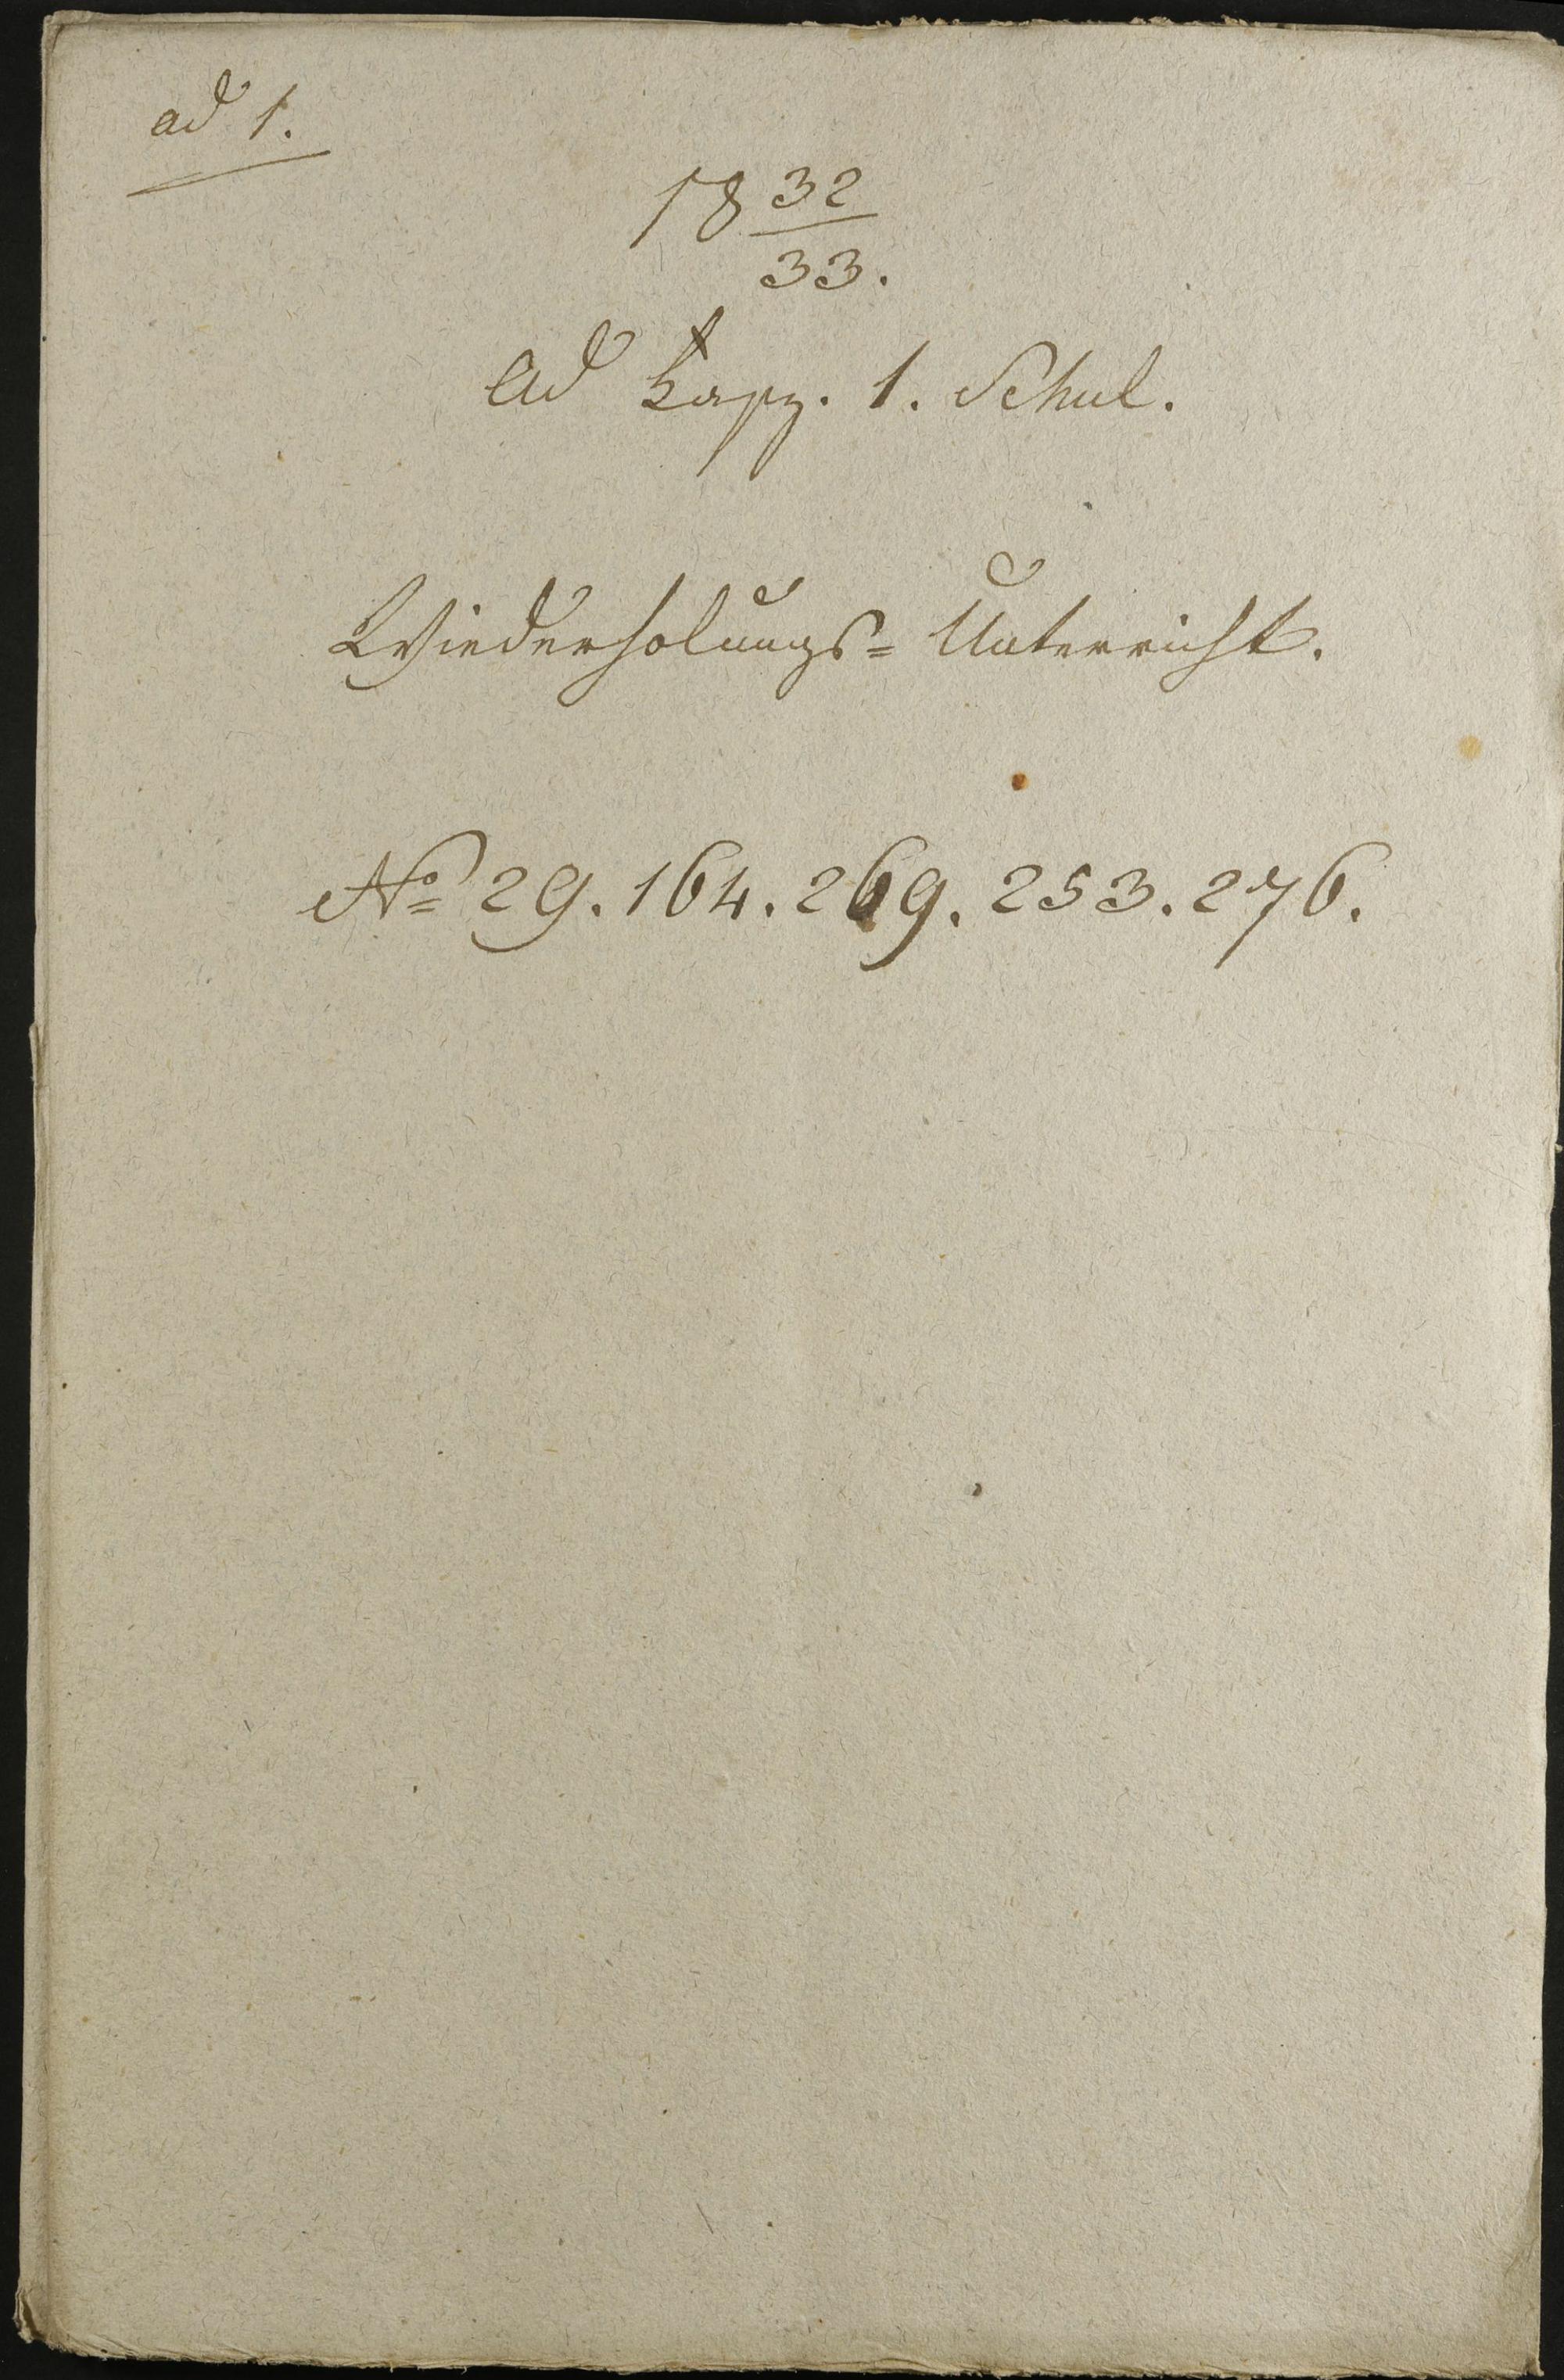 ad 1.
18 32
33.
Ad Fasz. 1. Schul.
Wiederholungs= Unterricht.
No 29. 164. 269. 253. 276.